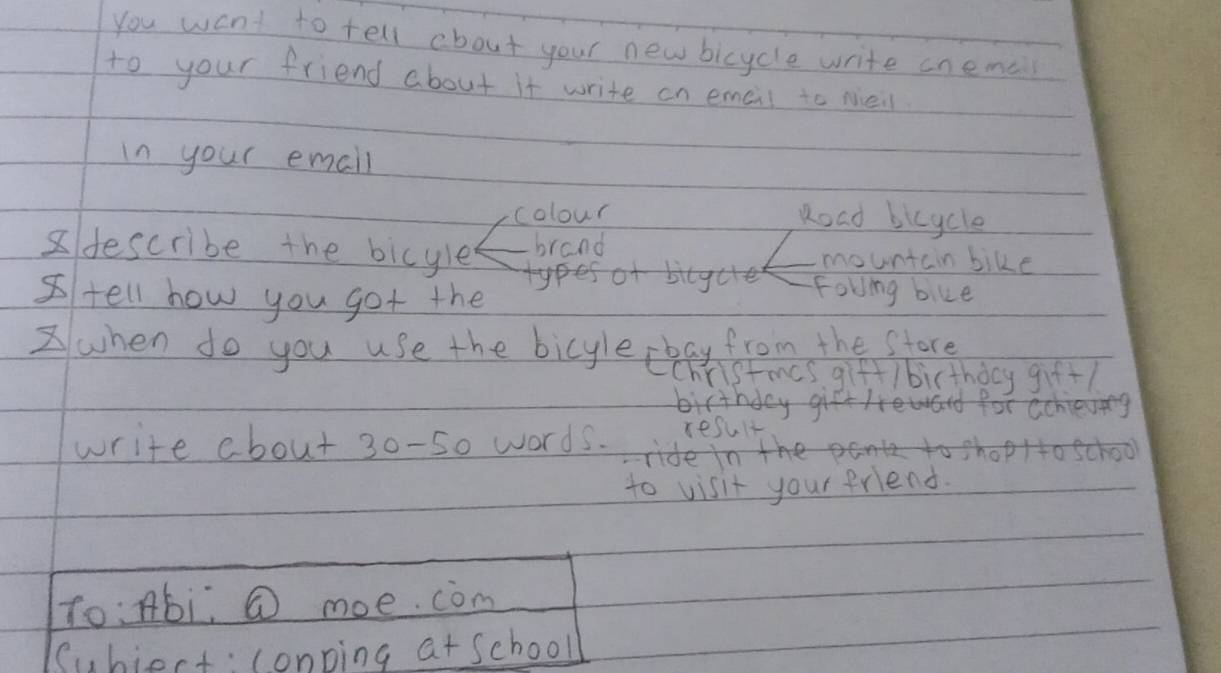 You want to tell about your new bicycle write an email
to your friend about it write an email to Nieil.
in your email
describe the bicyle
colour
brand
types of bicycle
Road bicycle
mountain bike
tell how you got the
when do you use the bicyle
bay from the store
Christmas gift / birthday gift /
birthday gift / reward for achieving
result
write about 30-50 words.
- ride in the to shop / to school
to visit your friend.
To: Abi. @ moe.com
Subject: at school